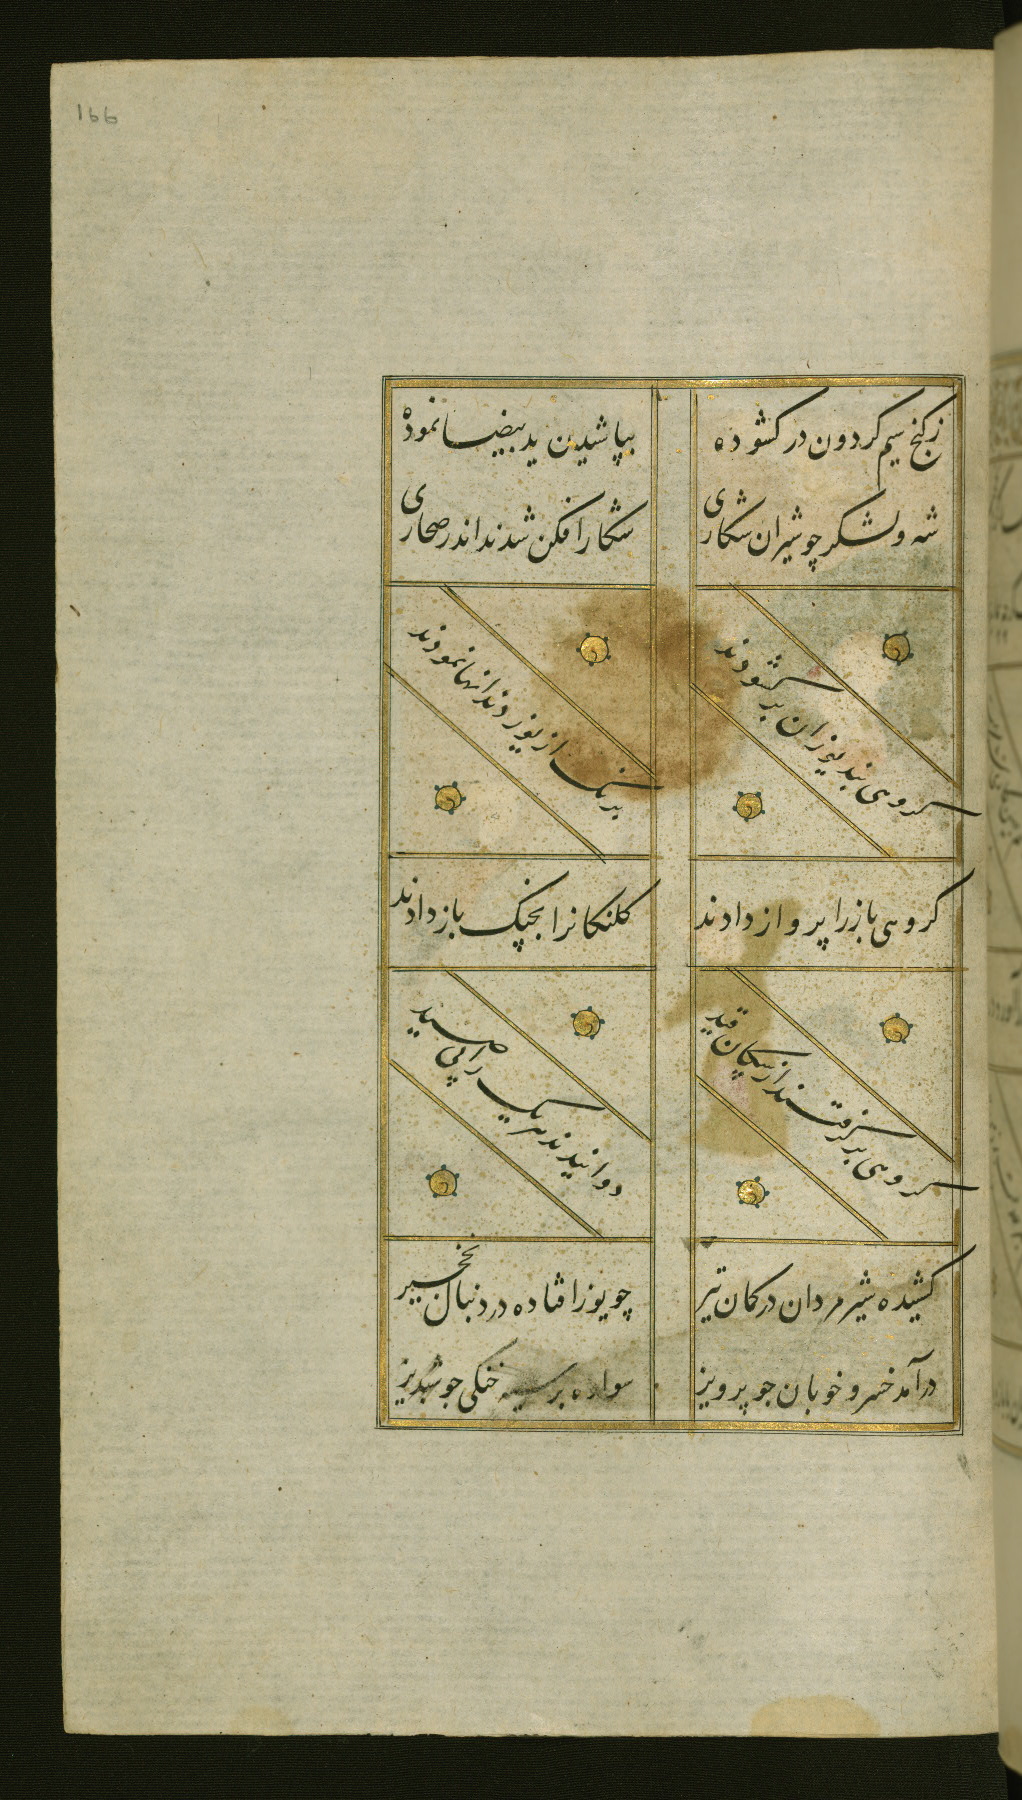 166
زکنج سیم کردون در کشوده
بپاشیدن ید بیضا نموده
شه و لشکر چو شیران شکاری
شکار افکن شدند اندر صحاری
کروهی بند یوزان بر کشودند
برنک از یوز دندانها نمودند
کروهی باز را پرواز دادند
کلنکانرا بچنک باز دادند
کروهی بر کرفتند از سکان قید
دوانیدند هر یک را پی صید
کشیده شیر مردان در کمان تیر
چو یوز افتاده در دنبال نخجیر
درآمد خسرو خوبان چو پرویز
سواره بر سیه خنکی چو شبدیز